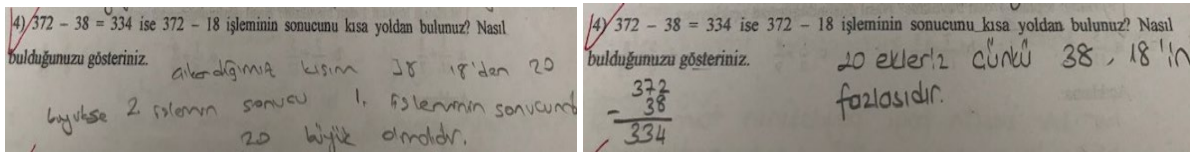 4) 372 – 38 = 334 ise 372 – 18 işleminin sonucunu kısa yoldan bulunuz? Nasıl
bulduğunuzu gösteriniz.
çıkardığımız kısım 38 18'den 20
büyükse 2. işlemin sonucu 1. işleminin sonucund
20 büyük olmalıdır.
4) 372 – 38 = 334 ise 372 – 18 işleminin sonucunu kısa yoldan bulunuz? Nasıl
bulduğunuzu gösteriniz.
20 ekleriz çünkü 38, 18'in
fazlasıdır.
372
– 38
334